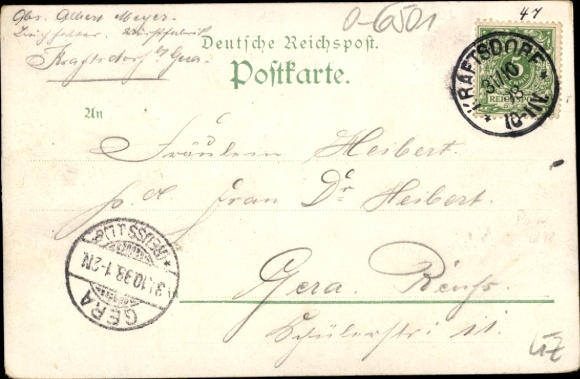 Abs. Albert Meyer.
Kraftsdorf b/ Gera.
0-6501
47
Deutsche Reichspost.
Postkarte.
KRAFTSDORF
31/10
98
10-11V.
REICHSPOST
An
Fräulein Heibert.
p. d. Frau Dr. Heibert.
GERA
(REUSS J.L.)
31.10.98.1-2N
Gera. Reuss.
Schülerstr. 11.